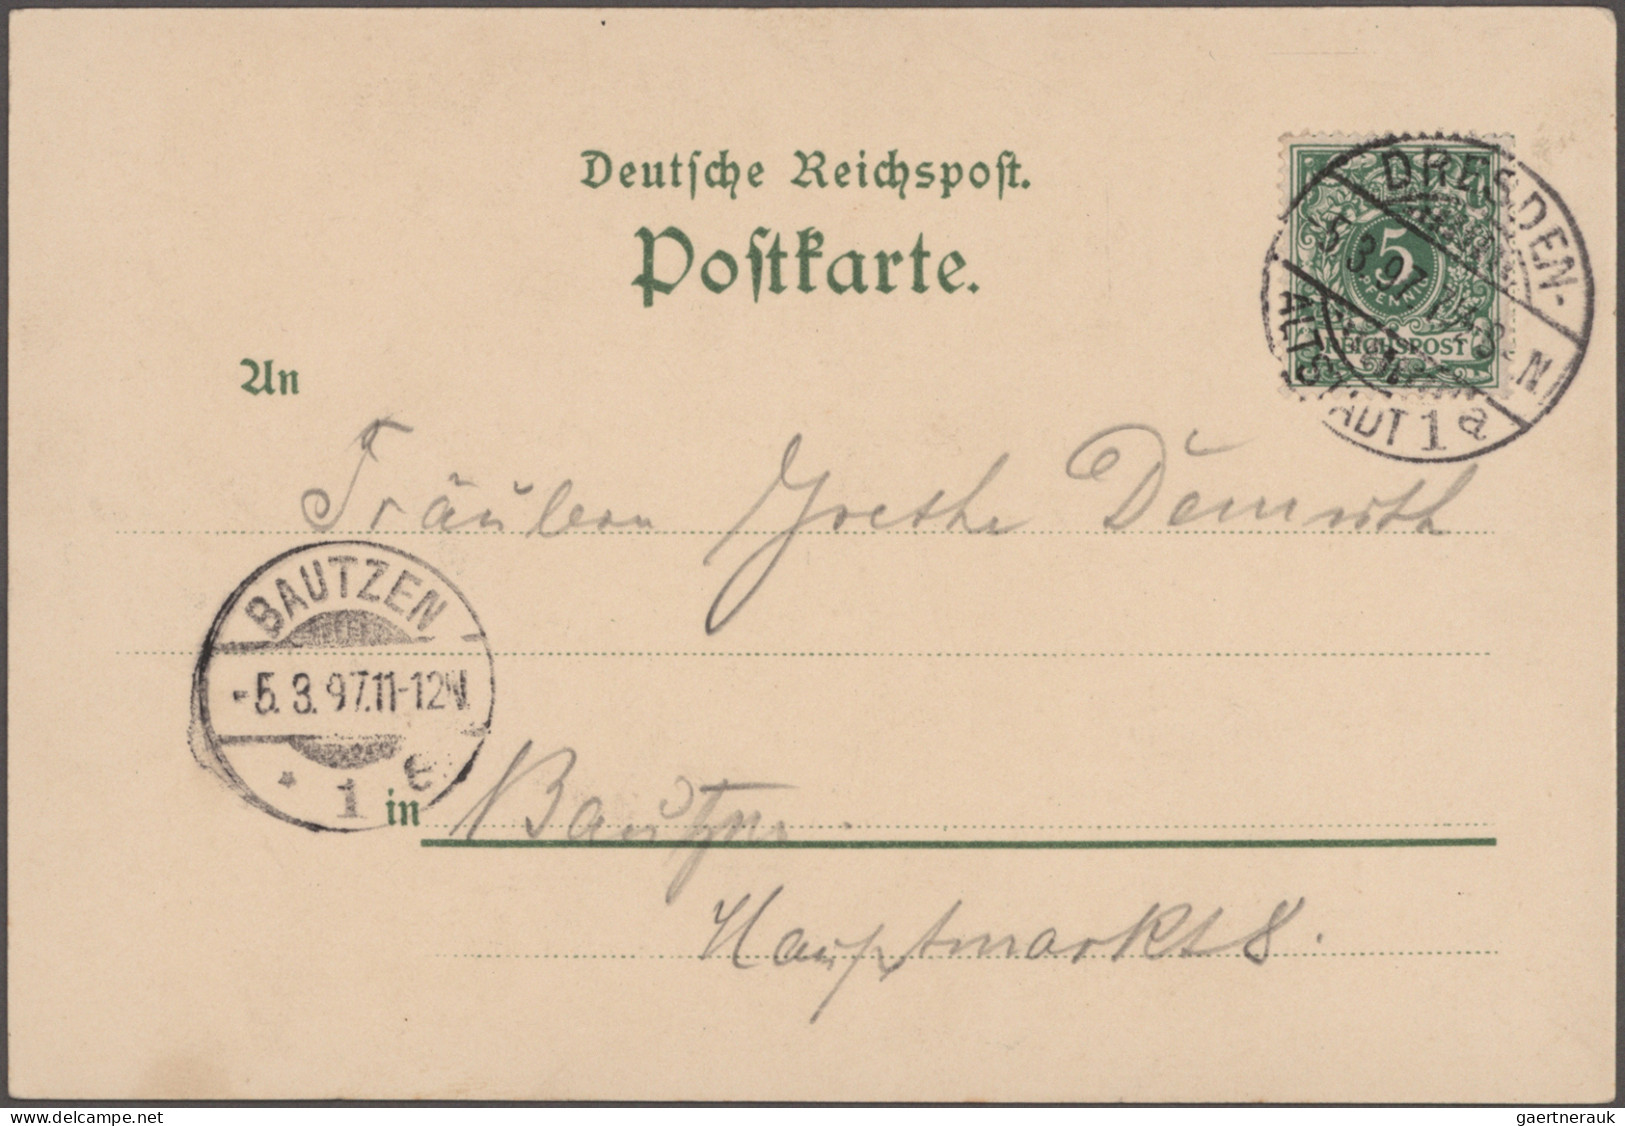 Deutsche Reichspost.
Postkarte.
DRESDEN-
5.3.97. 7½-8½N
ALTSTADT 1 a
5
PFENNIG
REICHSPOST
An
Fräulein Grethe Demuth
BAUTZEN
-5.3.97.11-12N.
* 1 e
in Bautzen.
Hauptmarkt 8.
www.delcampe.net
gaertnerauk